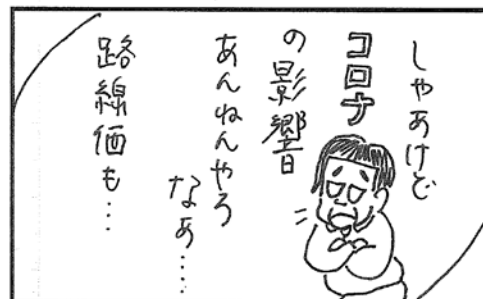 しやあけど
コロナ
の影響
あんねんやろ
なぁ……
路線価も…